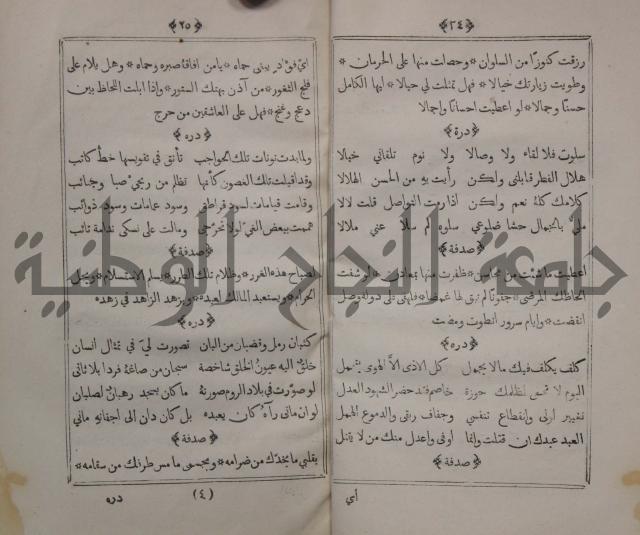 ﴿٢٤﴾
رزقت كنوزًا من السلوان * وحصلت منها على الحرمان *
وطويت زيارتك خيالا * فهل تمثلت لي حيالا * ايها الكامل
حسنًا وجمالا * لو اعطيت احسانًا واجمالا
﴿درة﴾
سلوت فلا لقاء ولا وصالا ولا نوم تلقاني خيالا
هلال الفطر قابلني ولكن رأيت به من الحسن الهلالا
كلامك كله نعم ولكن اذا رمت التواصل قلت لالا
ملي بالجمال حشا ضلوعي سلوه لم سلا عني ملالا
﴿صدفة﴾
اعطيت ما شئت من محاسن * ظفرت منها
انقضت * وايام سرور انطوت ومضت
﴿دره﴾
كلف يكلف فيك مالا يحمل كل الاذى الا الهوى
اليوم لا حوزة خاصم فقد حضر الشهود العدل
تغيير لوني وانقطاع تنفسي وجفاف ريقي والدموع الهمل
العبد عبدك ان قتلت وانما اوفى واعدل منك من لا يقتل
﴿صدفة﴾
أي
﴿٢٥﴾
اي فؤاد يبقى حماه * يا من افاقة صبره وحماه * وهل يلام على
فلج الثغور * من آذن بهتك الستور * واذا ابلت اللحاظ بين
دعج وغنج * فهل على العاشقين من حرج
﴿دره﴾
ولما بدت نونات تلك الحواجب تأنق في تقويسها خط كاتب
وقد اقبلت تلك الغصون كأنها تظلم من ريحي صبا وجنائب
وقامت قيامات لسود وسود عمامات وسود ذوائب
هممت ببعض الغي لولا تحرجي ومالت على نسكي ندامة تائب
﴿صدفة﴾
لصباح هذه الغرر * وظلام تلك الطرر * يسلم الاستسلام *
الحرام * ويستعبد المالك لعبده * ويزهد الزاهد في زهده
﴿دره﴾
كثبان رمل وقضبان من البان تصورت لي في تمثال انسان
خلق اليه عيون الخلق شاخصة سبحان من صاغه فردا بلا ثاني
لو صورت في بلاد الروم صورته ما كان يسجد رهبان لصلبان
لو ان ماني رآه كان يعبده بل كان دان الى اجفانه ماني
﴿صدفة﴾
بقلبي ما بخدك من ضرامه * وبجسمي ما بسطرتك من سقامه *
(٤)
دره
جامعة النجاح الوطنية